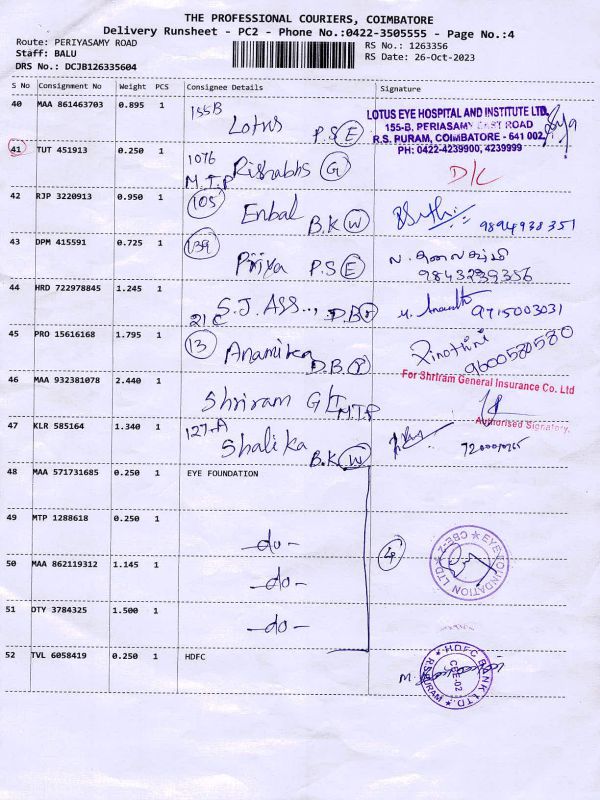 THE PROFESSIONAL COURIERS, COIMBATORE
Delivery Runsheet - PC2 - Phone No.:0422-3505555 - Page No.:4
Route: PERIYASAMY ROAD
Staff: BALU
DRS No.: DCJB126335604
RS No.: 1263356
RS Date: 26-Oct-2023
S No Consignment No Weight PCS Consignee Details Signature
40 MAA 861463703 0.895 1 155B Lotus P.S E
LOTUS EYE HOSPITAL AND INSTITUTE LTD,
155-B, PERIASAMY EAST ROAD
R.S. PURAM, COIMBATORE - 641 002,
PH: 0422-4239900, 4239999
41 TUT 451913 0.250 1 1076 Rishabhs G
M.T.P
D/L
42 RJP 3220913 0.950 1 105 Enbal B.K W
9894938351
43 DPM 415591 0.725 1 139 Priya P.S E
9843239356
44 HRD 722978845 1.245 1 21C S.J. ASS.., D.B r
9715003031
45 PRO 15616168 1.795 1 13 Anamika D.B r
9600580580
46 MAA 932381078 2.440 1 Shriram GI M.T.P
For Shriram General Insurance Co. Ltd
Authorised Signatory.
47 KLR 585164 1.340 1 127-A Shalika B.K W
48 MAA 571731685 0.250 1 EYE FOUNDATION
49 MTP 1288618 0.250 1 -do-
50 MAA 862119312 1.145 1 -do-
4
EYE FOUNDATION LTD CBE-2
51 OTY 3784325 1.500 1 -do-
52 TVL 6058419 0.250 1 HDFC
HDFC BANK LTD. R.S.PURAM CBE-02